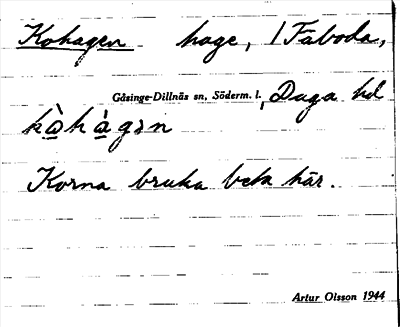 Kohagen hage, 1 Faboda,
Gåsinge-Dillnäs sn, Söderm. l. Duga hd
kò̱hà̱gən
Korna bruka beta här.
Artur Olsson 1944